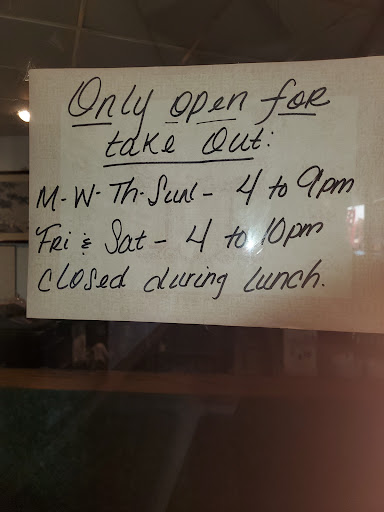 Only open for
take Out:
M-W-Th-Sun- 4 to 9pm
Fri & Sat - 4 to 10pm
closed during lunch.